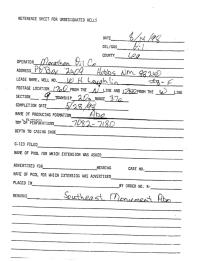 REFERENCE SHEET FOR UNDESIGNATED WELLS
DATE 8/14/98
OIL/GAS Oil
COUNTY Lea
OPERATOR Marathon Oil Co
ADDRESS PO Box 2409 Hobbs NM 88240
LEASE NAME, WELL NO.
FOOTAGE LOCATION FROM THE N LINE AND FROM THE W LINE
SECTION 9 TOWNSHIP 20s RANGE 37e
COMPLETION DATE 5/28/98
NAME OF PRODUCING FORMATION Abo
TOP OF PERFORATIONS 7082-7180
DEPTH TO CASING SHOE
C-123 FILED
NAME OF POOL FOR WHICH EXTENSION WAS ASKED
ADVERTISED FOR HEARING CASE NO.
NAME OF POOL FOR WHICH EXTENSION WAS ADVERTISED
PLACED IN BY ORDER NO. R-
REMARKS Southeast Monument Abo